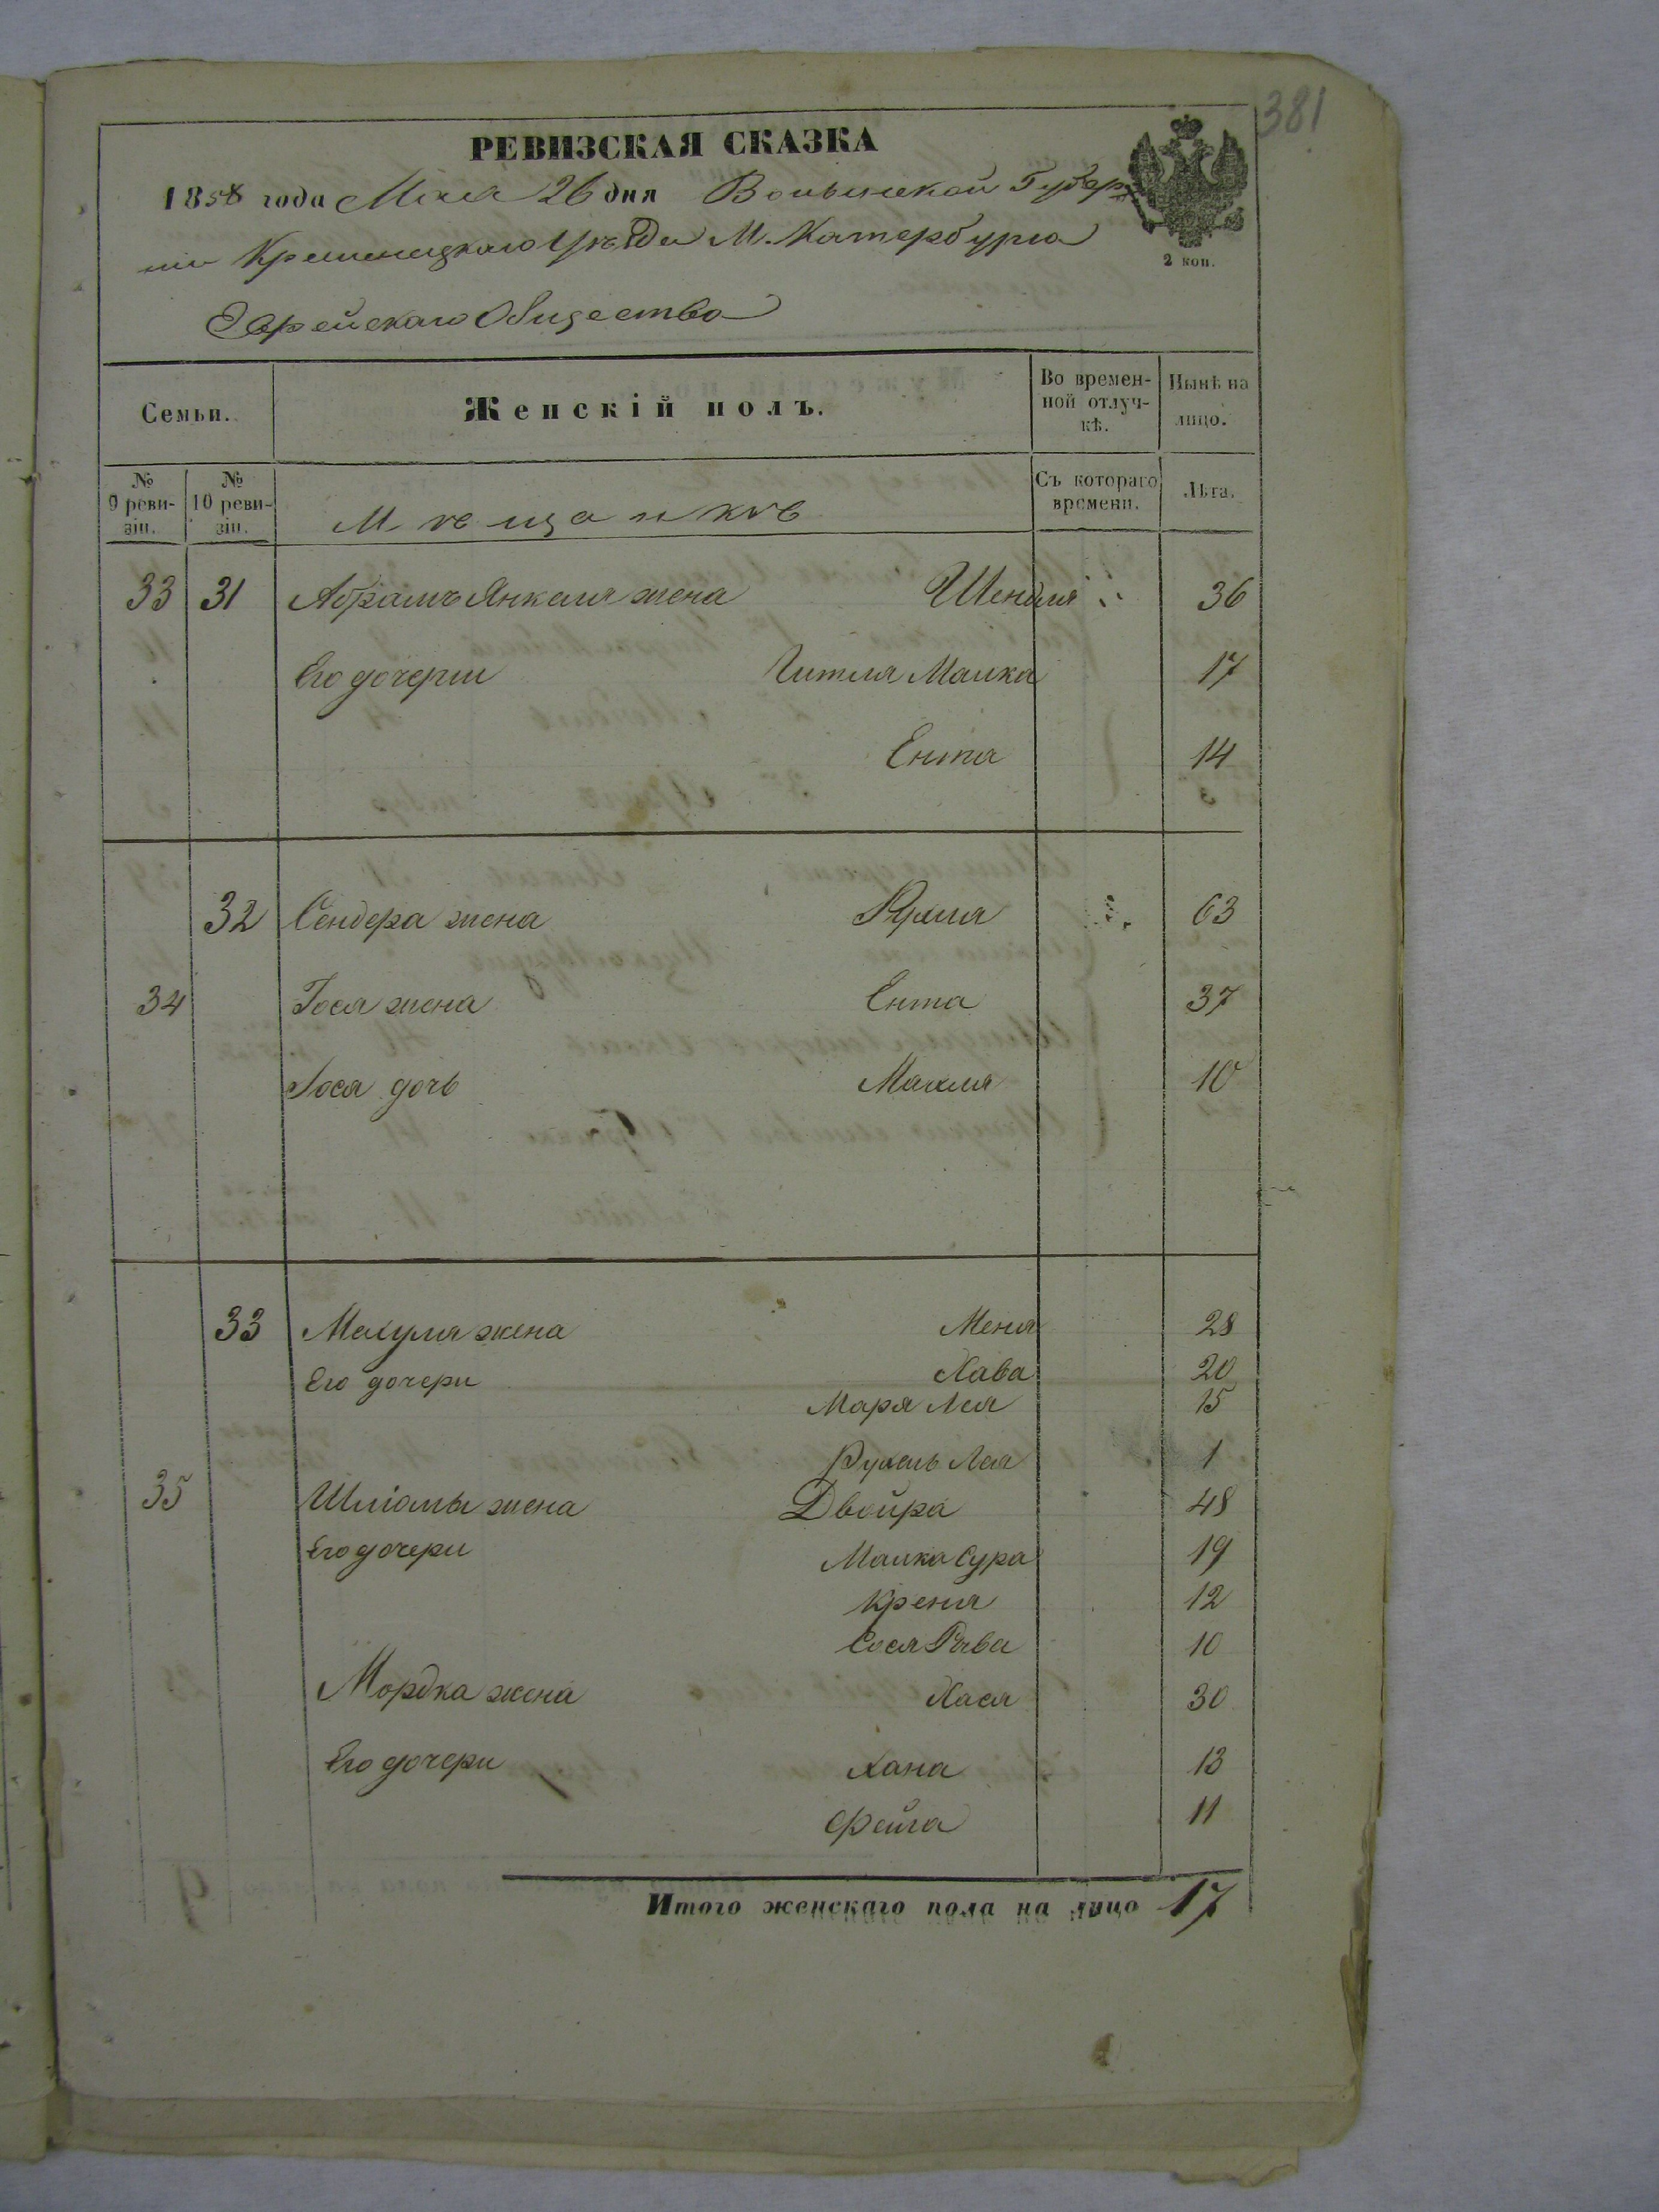 381
РЕВИЗСКАЯ СКАЗКА
1858 года Мая 26 дня Волынской Губер
нии Кременецкаго Уѣзда М. Катербурга
Еврейскаго Общества
2 коп.
Семьи. Женскій полъ. Во времен-ной отлуч-кѣ. Нынѣ на лицо.
№ 9 реви-зіи. № 10 реви-зіи. Мѣщанкѣ Съ котораго времени. Лѣта.
33 31 Абрамъ Янкеля жена Шендля 36
Его дочери Гитля Малка 17
Ента 14
32 Сендера жена Рухля 63
34 Іося жена Ента 37
Іося дочь Махля 10
33 Мехуля жена Меня 28
Его дочери Хава 20
Маря Лея 15
Рухель Лея 1
35 Шліомы жена Двойра 48
Его дочери Малка Сура 19
Креня 12
Сося Рыва 10
Мордка жена Хася 30
Его дочери Хана 13
Фейга 11
Итого женскаго пола на лицо 17